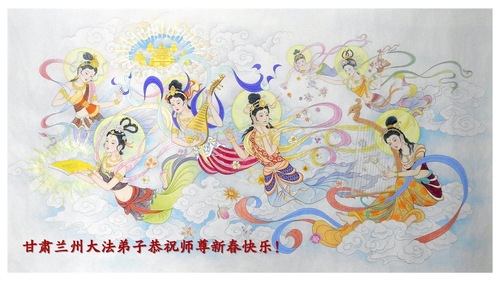 甘肃兰州大法弟子恭祝师尊新春快乐！